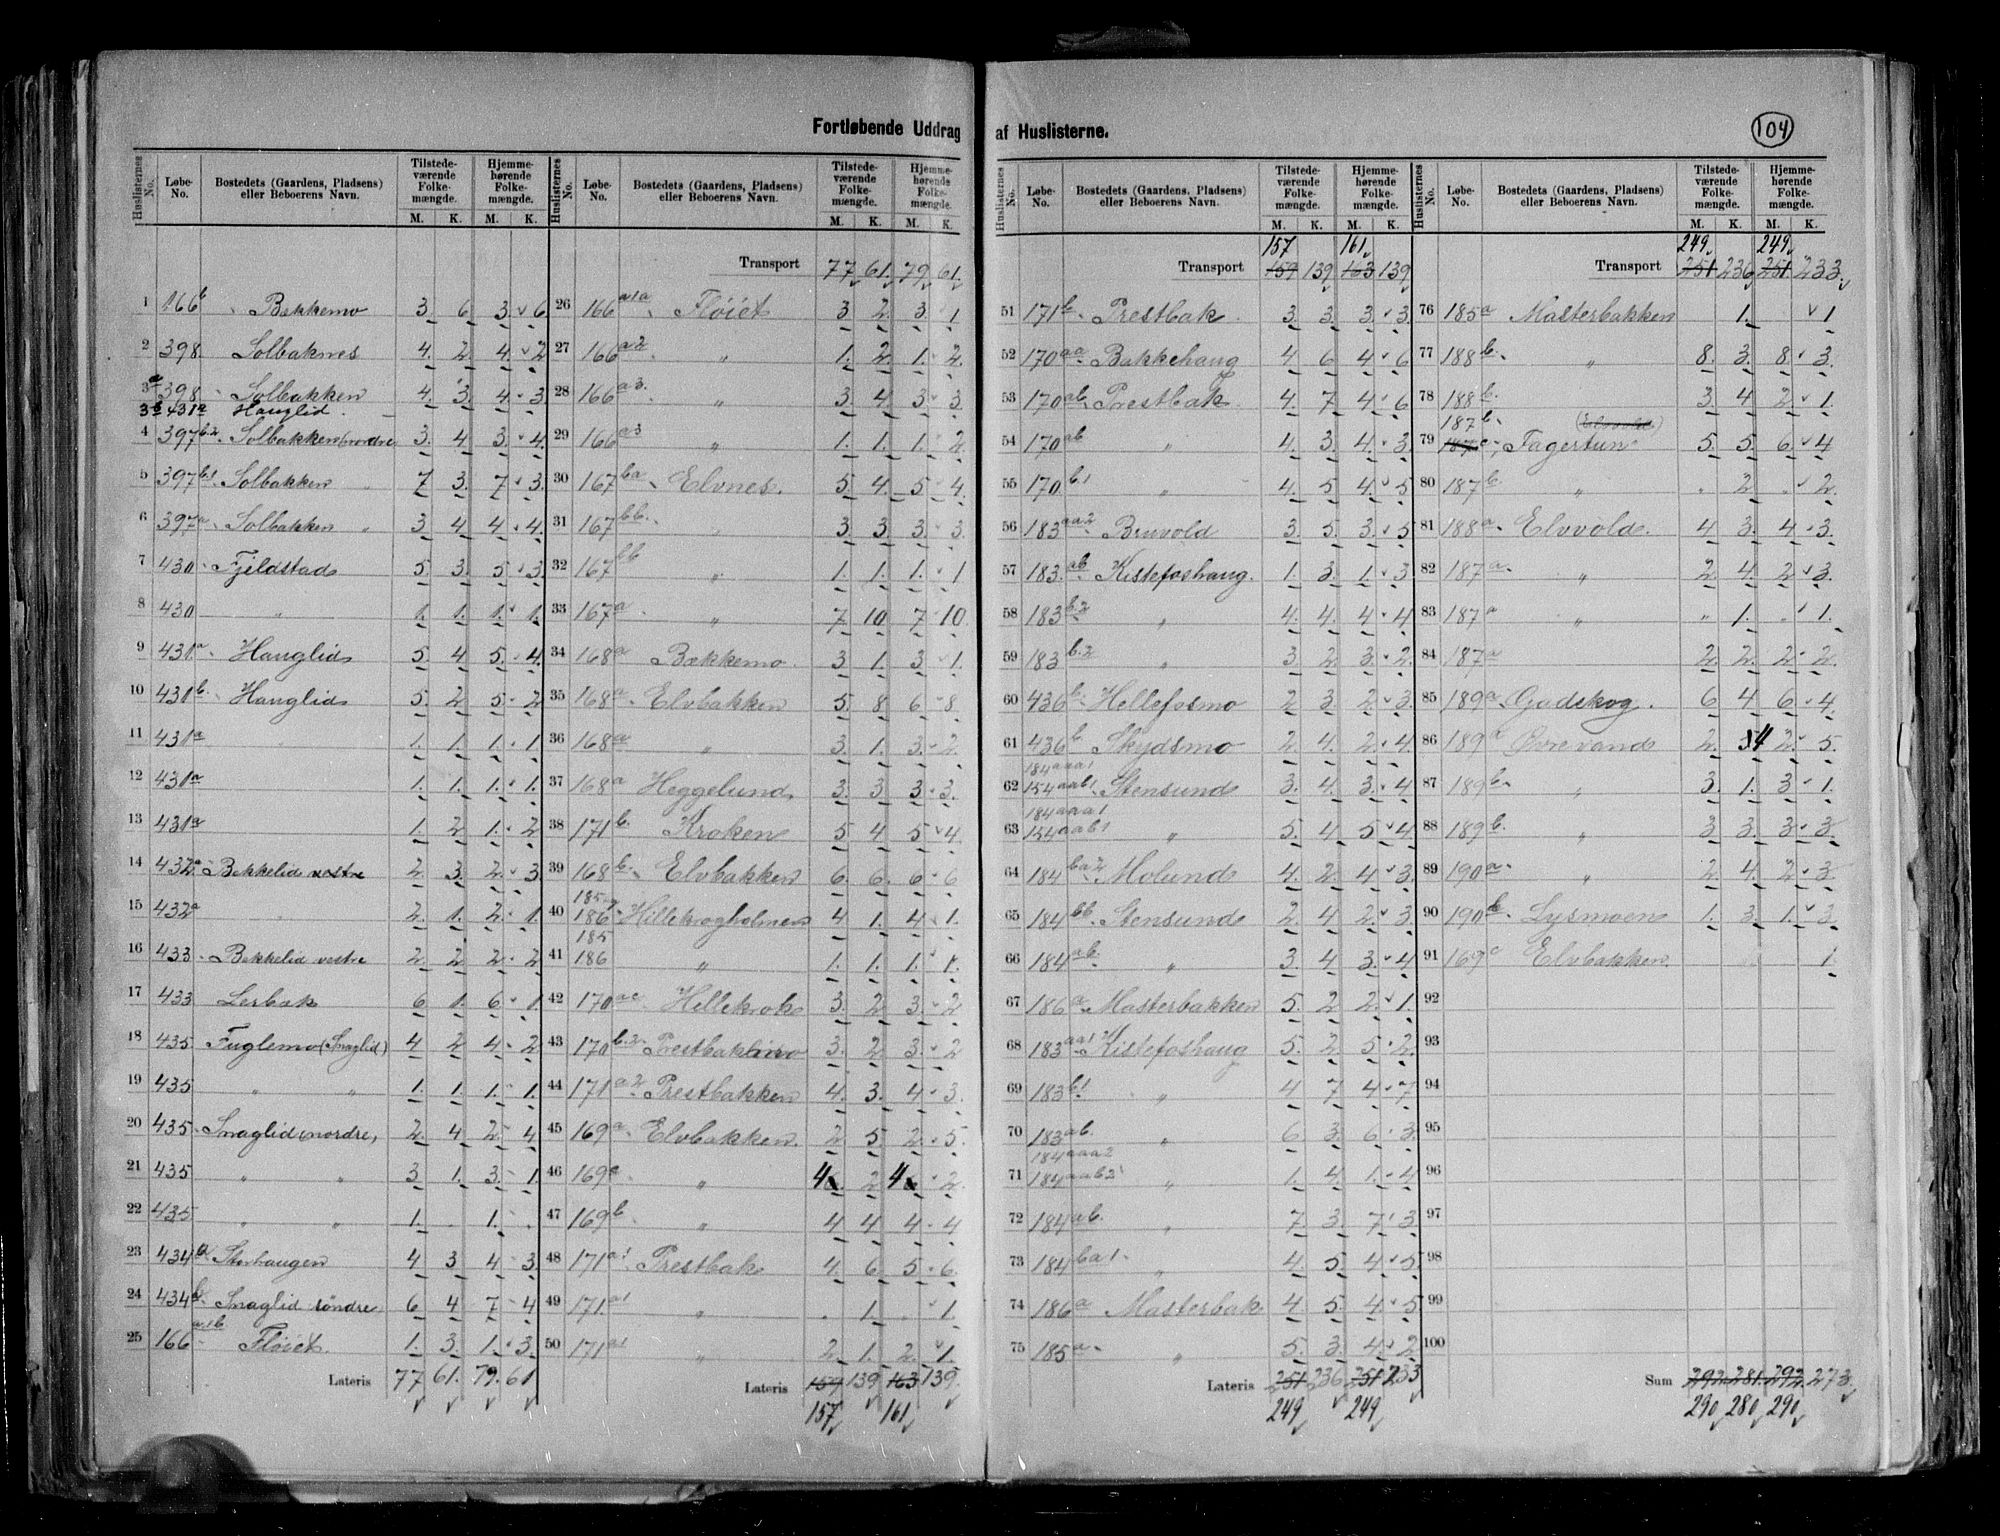 Fortløbende Uddrag af Huslisterne.
104
Huslisternes No. Løbe-No. Bostedets (Gaardens, Pladsens) eller Beboerens Navn. Tilstedeværende Folkemængde. M. K. Hjemmehørende Folkemængde. M. K.
1 166b Bakkemo 3. 6. 3 6
2 398. Solbaknes 4. 2. 4. 2
3a 398 Solbakken 4. 3. 4 3.
3b 431a Hanglid.
4 397b.2 Solbakken nordre 3. 4 3. 4.
5 397b.1 Solbakken " 7 3. 7 3.
6 397a Solbakken " 3 4 4 4.
7 430 Fjeldstad 5 3. 5 3.
8 430 " 1. 1. 1. 1.
9 431a Hanglid 5 4 5. 4.
10 431b. Hanglid 5 2 5 2
11 431a 1. 1. 1. 1
12 431a 1. 1. 1. 1
13 431a 1. 2 1. 2
14 432a Bekkelid vestre 2. 3. 2 3.
15 432a 2. 1. 2 1.
16 433 Bekkelid vestre 2 2 2 2
17 433 Lerbak 6 1. 6 1.
18 435 Fuglemo (Snaglid) 4 2 4 2
19 435 " " 1. 1. 1. 1.
20 435 Snaglid nordre, 2 4 2 4
21 435 " " 3 1. 3 1.
22 435 " " 1. . 1. .
23 434a Storhaugen 4 3 4 3
24 434b Snaglid söndre 6 4 7 4
25 166a.1b Fløiet. 1. 3 1. 3.
Lateris 77 61. 79. 61
Huslisternes No. Løbe-No. Bostedets (Gaardens, Pladsens) eller Beboerens Navn. Tilstedeværende Folkemængde. M. K. Hjemmehørende Folkemængde. M. K.
Transport 77 61. 79. 61.
26 166a1a Fløiet 3 2. 3 1
27 166a2 " 1. 2. 1. 2.
28 166a3. " 3. 4. 3 3
29 166a3 " 1. 1. 1. 2
30 167ba Elvnes. 5. 4. 5 4.
31 167bb. " 3. 3. 3 3
32 167bb " 1. 1. 1. 1
33 167a " 7 10 7 10
34 168a Bakkemo. 3 1. 3 1.
35 168a Elvbakken 5 8 6 8
36 168a " 3. 1. 3. 2.
37 168a Heggelund 3. 3 3 3.
38 171b. Kroken 5 4 5 4
39 168b Elvbakken 6. 6. 6 6
40 185, 186 Hillekrogholmen 4 1. 4 1.
41 185 186 " 1. 1. 1. 1.
42 170ac Hellekrok 3. 2 3. 2
43 170b.2. Prestbakkmo 3. 2 3. 2
44 171a2 Prestbakken 4. 3. 4 3.
45 169a Elvbakken. 2 5 2. 5.
46 169a " 4 2 4 2.
47 169b " 4 4 4 4
48 171a1 Prestbak 4. 6 5 6.
49 171a1 " . 1. 1.
50 171a1 " 2 1. 2. 1.
Lateris 159 139 163 139.
157 161
Huslisternes No. Løbe-No. Bostedets (Gaardens, Pladsens) eller Beboerens Navn. Tilstedeværende Folkemængde. M. K. Hjemmehørende Folkemængde. M. K.
157 161
Transport 159 139 163 139
51 171b Prestbak 3. 3. 3 3.
52 170aa Bakkehaug 4 6 4 6
53 170ab Prestbak 4 7 4 6
54 170ab " 4. 3 4 3.
55 170b.1 " 4. 5 4. 5
56 183aa2 Bruvold 3. 5 3. 5
57 183.ab Kistefoshaug. 1. 3. 1. 3
58 183b.2 " 4. 4. 4 4
59 183b.2 " 3 2. 3. 2.
60 436b. Hellefosmo 2 3 2 3.
61 436b Skydsmo 2 4. 2 4
62 184aaa1 154aab1 Stensund 3. 4. 3 4
63 184aaa1 154aab1 " 5. 4 5 4.
64 184ba2 Molund 4. 2. 4 3.
65 184bb. Stensund 2 4 2 3.
66 184ab. " 3. 4 3. 4
67 186a Masterbakken 5. 2 2. 1.
68 183aa1 Kistefoshaug 5. 2 5 2.
69 183b.1 " 4 7 4 7
70 183ab. " 6 3. 6 3.
71 184aaa2 184aab2 " 1. 4 1. 4
72 184ab. " 7. 3. 7 3.
73 184ba1 " 4. 5 4. 5.
74 186a Masterbak 4 5. 4 5
75 185a " 5. 3. 4 2
Lateris 251 236 251 233
249 249
Huslisternes No. Løbe-No. Bostedets (Gaardens, Pladsens) eller Beboerens Navn. Tilstedeværende Folkemængde. M. K. Hjemmehørende Folkemængde. M. K.
249 249
Transport 251 236 251 233.
76 185a Masterbakken 1. 1.
77 188b. " 8. 3. 8 3.
78 188b. 3. 4 2 1.
79 187b. 187c Fagertun 5. 5. 6 4
80 187b " " 2 " 2.
81 188a Elvvold. 4. 3. 4 3.
82 187a " 2. 4. 2 3.
83 187a " " 1. " 1.
84 187a 2. 2. 2 2.
85 189a Gadskog. 6 4 6 4.
86 189a Övrevand 2. 4 2. 5.
87 189b " 3. 1. 3 1.
88 189b. " 3 3. 3 3.
89 190a " 2. 4 2 3.
90 190b. Lysmoen 1. 3. 1. 3
91 169c Elvbakken. 1.
92
93
94
95
96
97
98
99
100
Sum 292. 281. 292. 273.
290 280 290